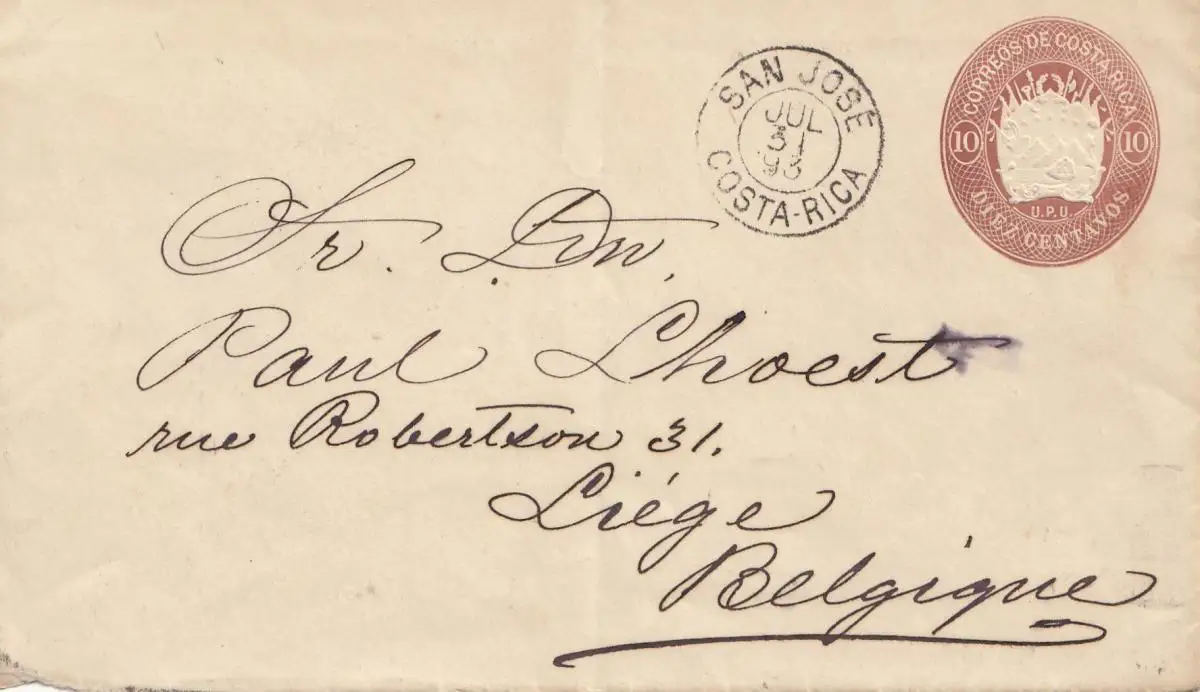 CORREOS DE COSTA RICA
10 10
U.P.U.
DIEZ CENTAVOS
SAN JOSÉ
JUL
31
93
COSTA-RICA
Sr. Dn.
Paul Lhoest
rue Robertson 31.
Liége
Belgique